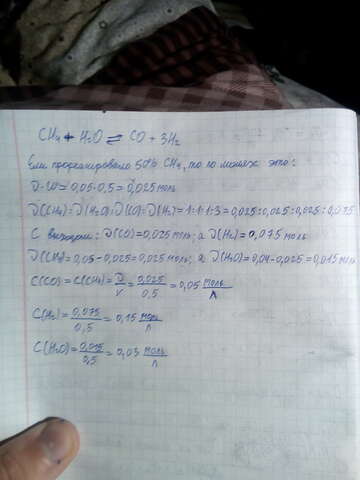 CH₄ + H₂O ⇌ CO + 3H₂
Если прореагировало 50% CH₄, то по молях это:
0,05·0,5 = 0,025 моль
ϑ(CH₄):ϑ(H₂O):ϑ(CO):ϑ(H₂) = 1:1:1:3 = 0,025:0,025:0,025:0,075
ϑ(CO) = 0,025 моль; а ϑ(H₂) = 0,075 моль
ϑ(CH₄) = 0,05 - 0,025 = 0,025 моль; а ϑ(H₂O) = 0,04 - 0,025 = 0,015 моль
C(CO) = C(CH₄) = ϑ/V = 0,025/0,5 = 0,05 моль/л
C(H₂) = 0,075/0,5 = 0,15 моль/л
C(H₂O) = 0,015/0,5 = 0,03 моль/л